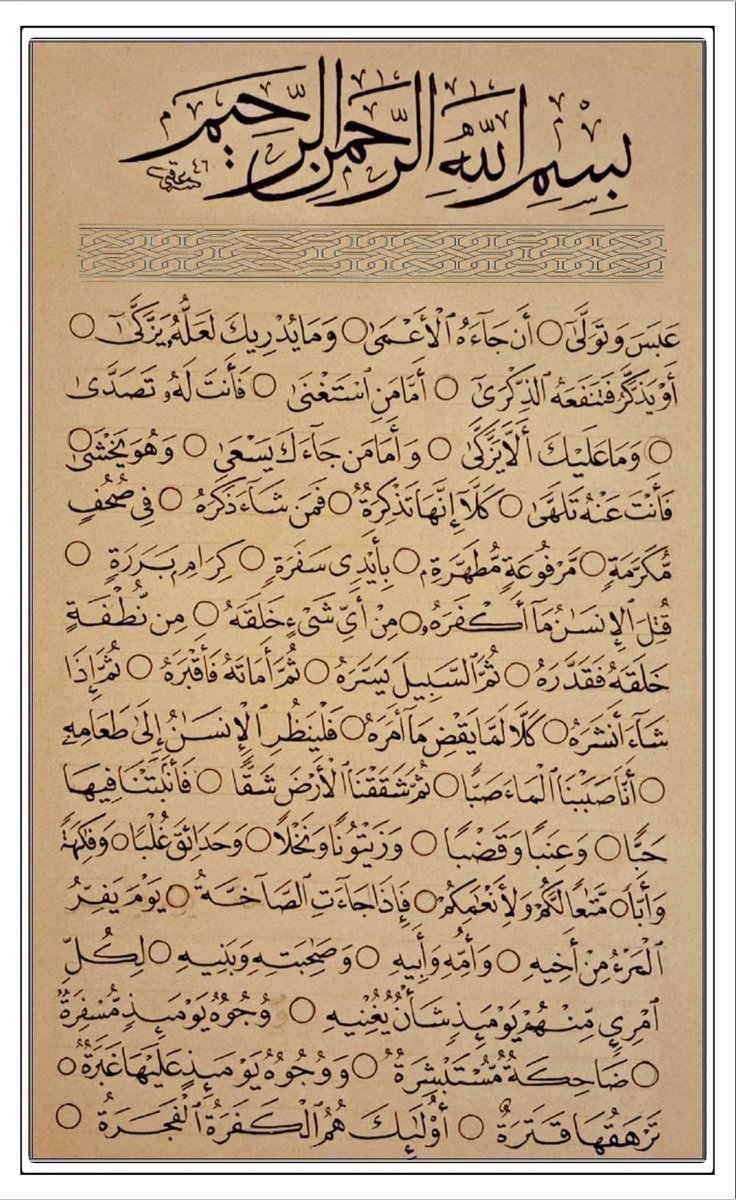 بِسْمِ اللَّهِ الرَّحْمَنِ الرَّحِيمِ
عَبَسَ وَتَوَلَّىٰٓ ○ أَن جَآءَهُ ٱلْأَعْمَىٰ ○ وَمَا يُدْرِيكَ لَعَلَّهُۥ يَزَّكَّىٰٓ ○
أَوْ يَذَّكَّرُ فَتَنفَعَهُ ٱلذِّكْرَىٰٓ ○ أَمَّا مَنِ ٱسْتَغْنَىٰ ○ فَأَنتَ لَهُۥ تَصَدَّىٰ
○ وَمَا عَلَيْكَ أَلَّا يَزَّكَّىٰ ○ وَأَمَّا مَن جَآءَكَ يَسْعَىٰ ○ وَهُوَ يَخْشَىٰ ○
فَأَنتَ عَنْهُ تَلَهَّىٰ ○ كَلَّآ إِنَّهَا تَذْكِرَةٌ ○ فَمَن شَآءَ ذَكَرَهُ ○ فِى صُحُفٍ
مُّكَرَّمَةٍ ○ مَّرْفُوعَةٍ مُّطَهَّرَةٍۭ ○ بِأَيْدِى سَفَرَةٍ ○ كِرَامٍۭ بَرَرَةٍ ○
قُتِلَ ٱلْإِنسَـٰنُ مَآ أَكْفَرَهُۥ ○ مِنْ أَىِّ شَىْءٍ خَلَقَهُ ○ مِن نُّطْفَةٍ
خَلَقَهُ فَقَدَّرَهُ ○ ثُمَّ ٱلسَّبِيلَ يَسَّرَهُ ○ ثُمَّ أَمَاتَهُ فَأَقْبَرَهُ ○ ثُمَّ إِذَا
شَآءَ أَنشَرَهُ ○ كَلَّا لَمَّا يَقْضِ مَآ أَمَرَهُ ○ فَلْيَنظُرِ ٱلْإِنسَـٰنُ إِلَىٰ طَعَامِهِۦٓ
○ أَنَّا صَبَبْنَا ٱلْمَآءَ صَبًّا ○ ثُمَّ شَقَقْنَا ٱلْأَرْضَ شَقًّا ○ فَأَنۢبَتْنَا فِيهَا
حَبًّا ○ وَعِنَبًا وَقَضْبًا ○ وَزَيْتُونًا وَنَخْلًا ○ وَحَدَآئِقَ غُلْبًا ○ وَفَـٰكِهَةً
وَأَبًّا ○ مَّتَـٰعًا لَّكُمْ وَلِأَنْعَـٰمِكُمْ ○ فَإِذَا جَآءَتِ ٱلصَّآخَّةُ ○ يَوْمَ يَفِرُّ
ٱلْمَرْءُ مِنْ أَخِيهِ ○ وَأُمِّهِ وَأَبِيهِ ○ وَصَـٰحِبَتِهِ وَبَنِيهِ ○ لِكُلِّ
ٱمْرِئٍ مِّنْهُمْ يَوْمَئِذٍ شَأْنٌ يُغْنِيهِ ○ وُجُوهٌ يَوْمَئِذٍ مُّسْفِرَةٌ
○ ضَاحِكَةٌ مُّسْتَبْشِرَةٌ ○ وَوُجُوهٌ يَوْمَئِذٍ عَلَيْهَا غَبَرَةٌ ○
تَرْهَقُهَا قَتَرَةٌ ○ أُو۟لَـٰٓئِكَ هُمُ ٱلْكَفَرَةُ ٱلْفَجَرَةُ ○